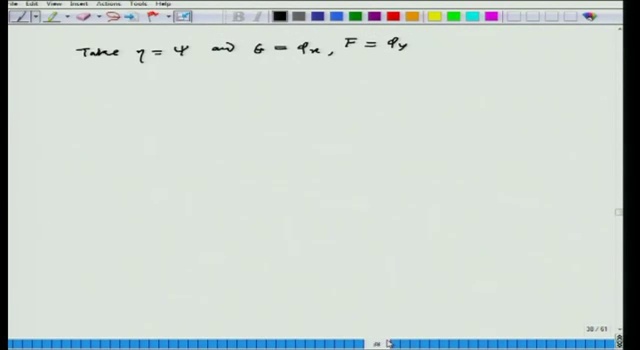 File Edit View Insert Actions Tools Help
Take η = ψ and G = φₓ, F = φᵧ
38 / 61